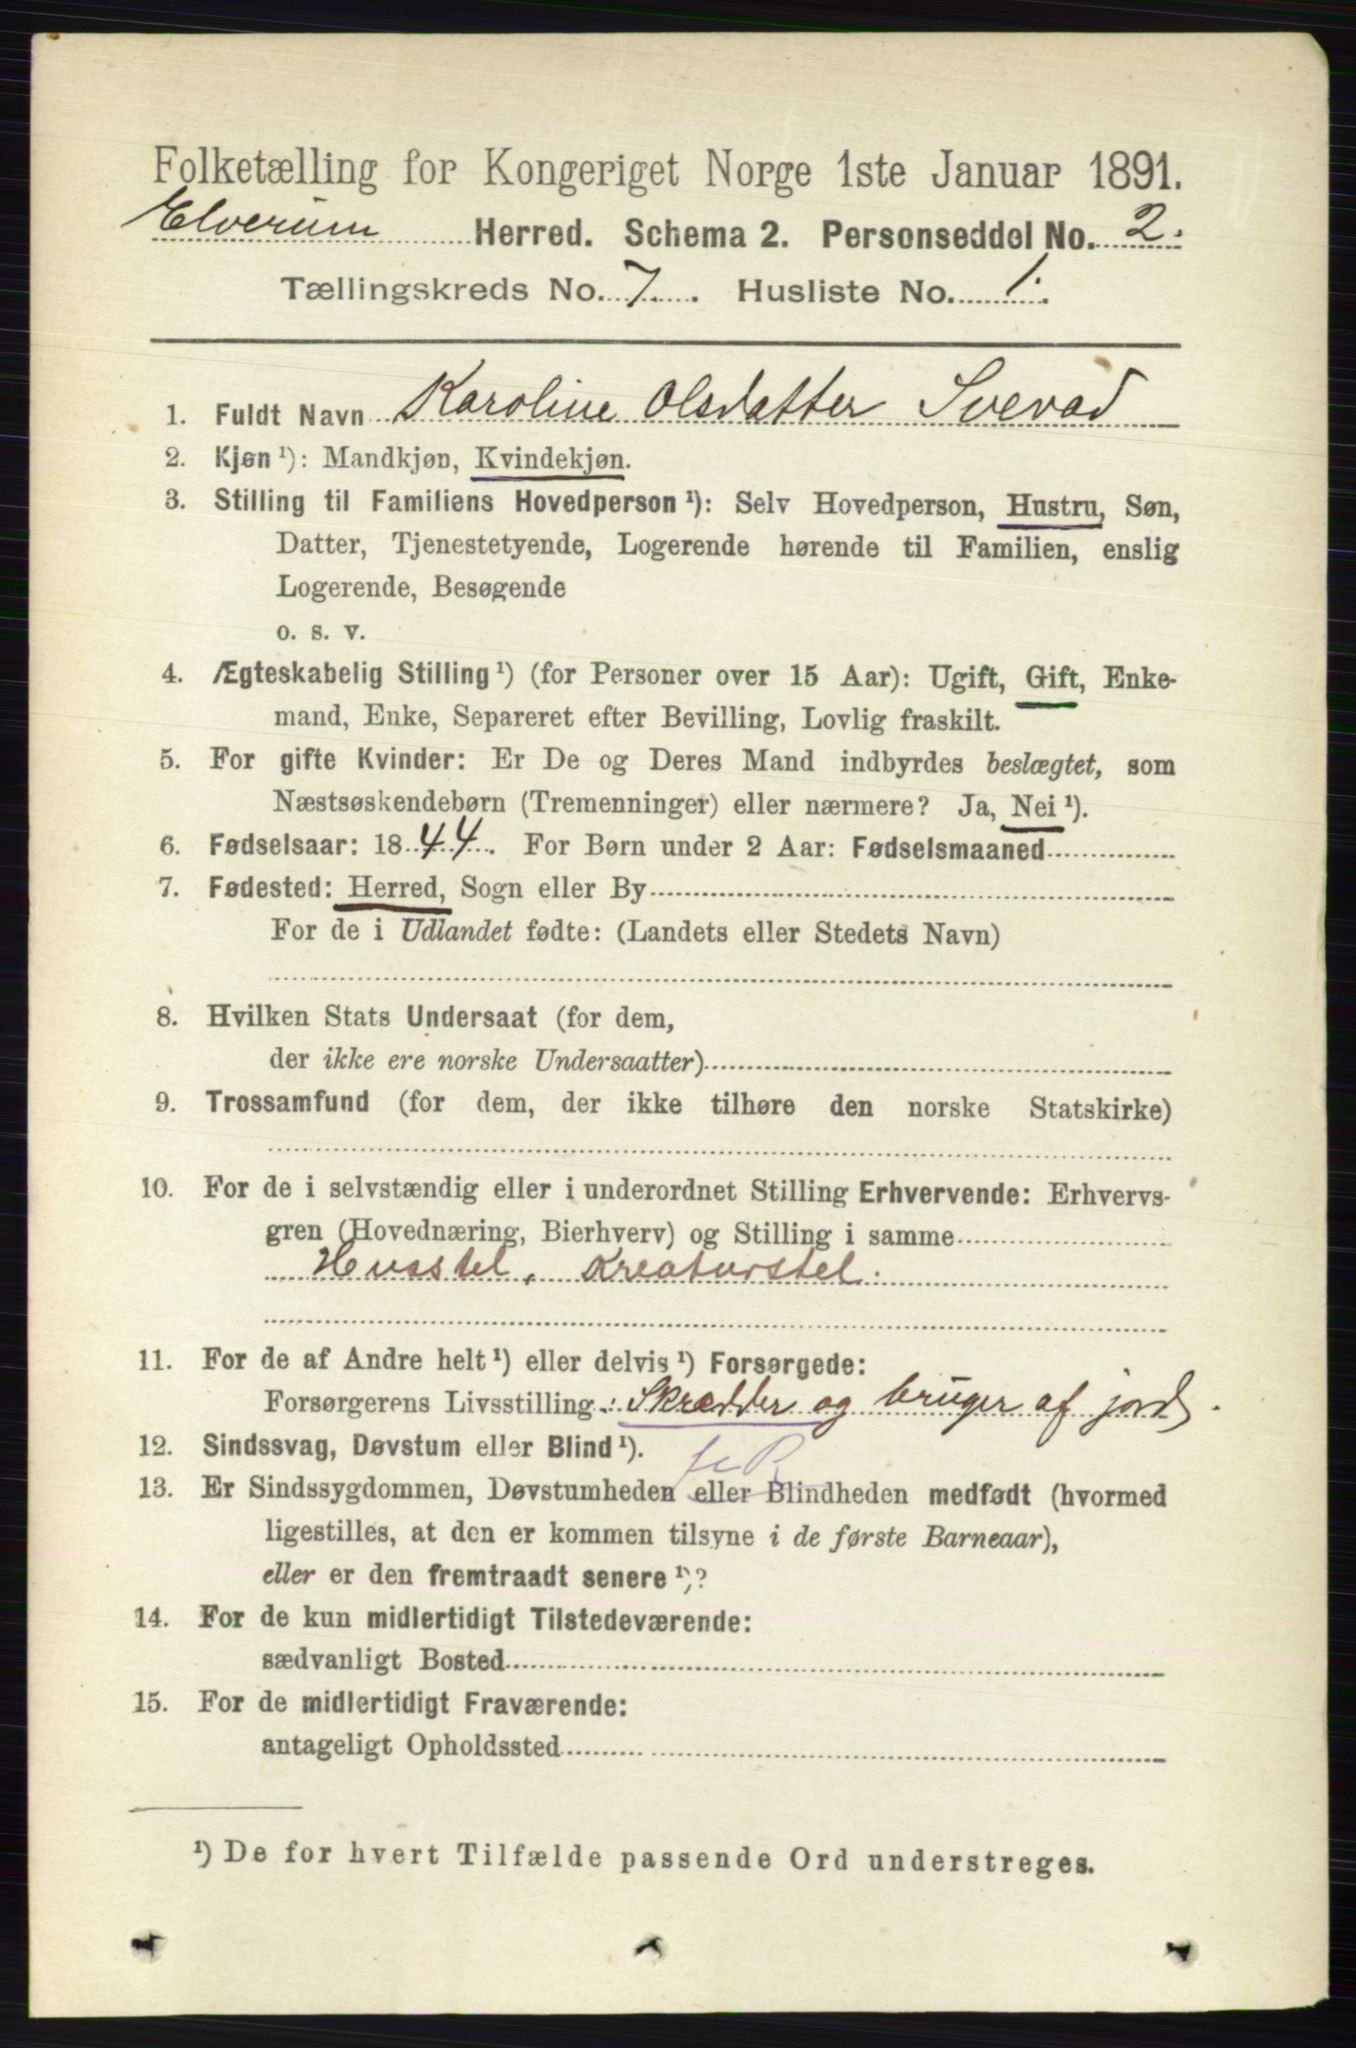 Folketælling for Kongeriget Norge 1ste Januar 1891.
Elverum Herred. Schema 2. Personseddel No. 2.
Tællingskreds No. 7. Husliste No. 1.
1. Fuldt Navn Karoline Olsdatter Svevad
2. Kjøn ¹): Mandkjøn, Kvindekjøn.
3. Stilling til Familiens Hovedperson ¹): Selv Hovedperson, Hustru, Søn,
Datter, Tjenestetyende, Logerende hørende til Familien, enslig
Logerende, Besøgende
o. s. v.
4. Ægteskabelig Stilling ¹) (for Personer over 15 Aar): Ugift, Gift, Enke-
mand, Enke, Separeret efter Bevilling, Lovlig fraskilt.
5. For gifte Kvinder: Er De og Deres Mand indbyrdes beslægtet, som
Næstsøskendebørn (Tremenninger) eller nærmere? Ja, Nei ¹).
6. Fødselsaar: 1844. For Børn under 2 Aar: Fødselsmaaned
7. Fødested: Herred, Sogn eller By
For de i Udlandet fødte: (Landets eller Stedets Navn)
8. Hvilken Stats Undersaat (for dem,
der ikke ere norske Undersaatter)
9. Trossamfund (for dem, der ikke tilhøre den norske Statskirke)
10. For de i selvstændig eller i underordnet Stilling Erhvervende: Erhvervs-
gren (Hovednæring, Bierhverv) og Stilling i samme
Husstel, Kreaturstel.
11. For de af Andre helt ¹) eller delvis ¹) Forsørgede:
Forsørgerens Livsstilling: Skrædder og bruger af jord.
12. Sindssvag, Døvstum eller Blind ¹).
13. Er Sindssygdommen, Døvstumheden eller Blindheden medfødt (hvormed
ligestilles, at den er kommen tilsyne i de første Barneaar),
eller er den fremtraadt senere ¹)?
14. For de kun midlertidigt Tilstedeværende:
sædvanligt Bosted
15. For de midlertidigt Fraværende:
antageligt Opholdssted
¹) De for hvert Tilfælde passende Ord understreges.